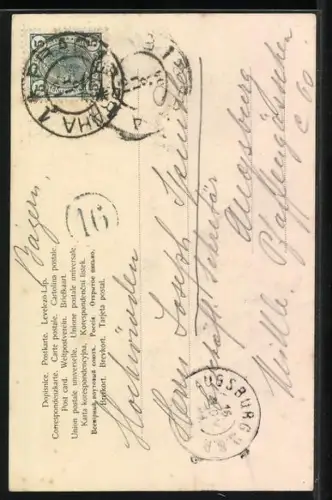 5 5
PRAG 1
PRAHA 1
Dopisnice. Postkarte. Levelezö-Lap.
Correspondenzkarte. Carte postale. Cartolina postale.
Post card. Weltpostverein. Briefkaart
Union postale universelle. Unione postale universale.
Karta korespondencyjna. Korespondenční lístek.
Всемірный почтовый союзъ. Россія. Открытое письмо.
Brefkort. Brevkort. Tarjeta postal.
Bayern.
Hochwürden
Herrn Joseph
Augsburg
Mittl. Pfaffengässchen
C 60.
AUGSBURG